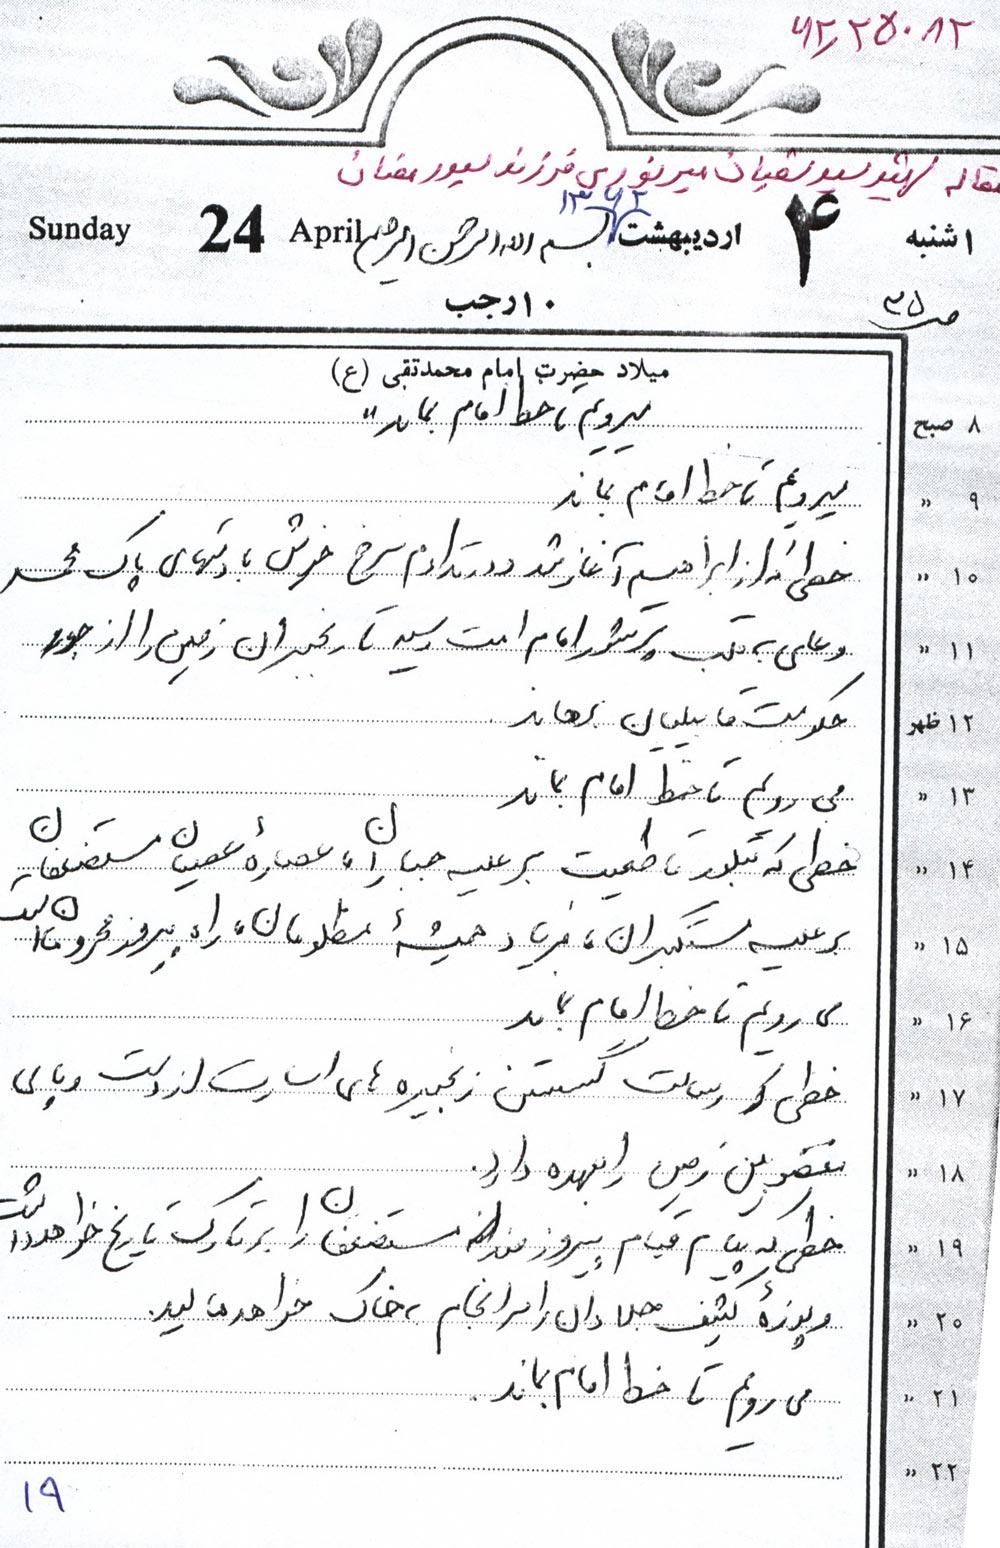 ۶۲,۲۵۰۸۲
مقاله شهید سید سفیان میرنوری فرزند سیدرمضان
۱۳۶۲
۱ شنبه ۴ اردیبهشت بسم الله الرحمن الرحیم April 24 Sunday
ص ۳۵
۱۰ رجب
میلاد حضرت امام محمدتقی (ع)
۸ صبح میرویم تا خط امام بماند"
۹ " میرویم تا خط امام بماند
۱۰ " خطی که از ابراهیم آغاز شد و در تداوم سرخ خونش با دستهای پاک محمد
۱۱ " و علی به قلب پرشور امام امت رسید تا رنجبران زمین را از جور
۱۲ ظهر حکومت قابیلیان برهاند.
۱۳ " می رویم تا خط امام بماند
۱۴ " خطی که تبلور قاطعیت بر علیه جباران، عصارهٔ عصیان مستضعفان
۱۵ " بر علیه مستکبران، فریاد همیشهٔ مظلومان، راه پیروز محرومان است
۱۶ " می رویم تا خط امام بماند
۱۷ " خطی که رسالت گسستن زنجیره های اسارت از دست و پای
۱۸ " مغضوبین زمین را بعهده دارد.
۱۹ " خطی که پیام قیام پیروزمندانه مستضعفان را بر تارک تاریخ خواهد داشت
۲۰ " و پوزهٔ کثیف جلادان را سرانجام به خاک خواهد مالید.
۲۱ " می رویم تا خط امام بماند.
۲۲ "
۱۹